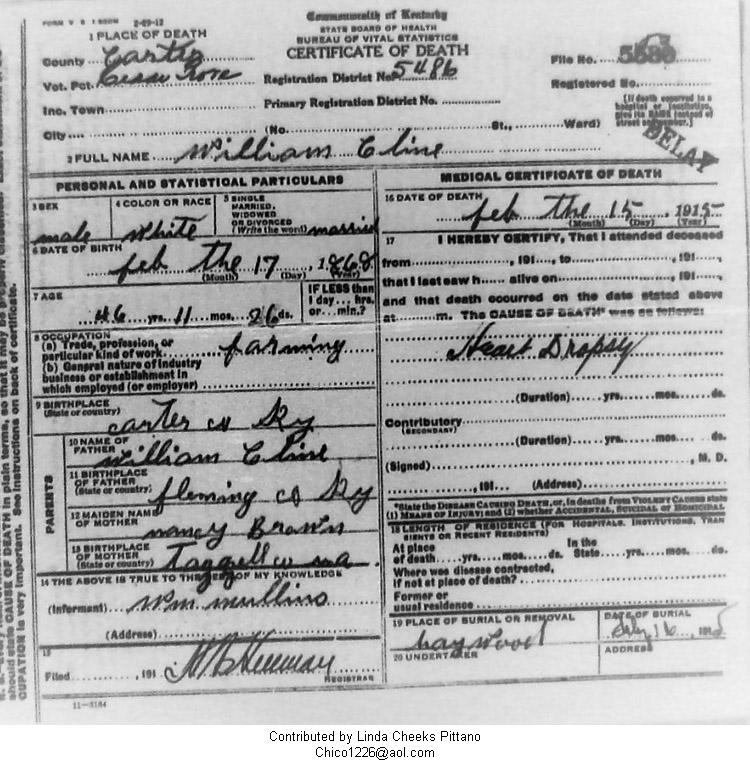 FORM V S 1 500M 2-29-12
Commonwealth of Kentucky
STATE BOARD OF HEALTH
BUREAU OF VITAL STATISTICS
CERTIFICATE OF DEATH
1 PLACE OF DEATH
County Carter
Vot. Pct.
Inc. Town
City (No. St., Ward)
Registration District No. 5486
Primary Registration District No.
File No. 5586
Registered No.
[If death occurred in a
hospital or institution,
give its NAME instead of
street and number.]
DELAY
2 FULL NAME William Cline
PERSONAL AND STATISTICAL PARTICULARS
3 SEX
male
4 COLOR OR RACE
White
5 SINGLE
MARRIED,
WIDOWED
OR DIVORCED
(Write the word) married
6 DATE OF BIRTH
feb the 17, 1868
(Month) (Day) (Year)
7 AGE
46 yrs. 11 mos. 26 ds.
IF LESS than
1 day... hrs.
or... min.?
8 OCCUPATION
(a) Trade, profession, or
particular kind of work farming
(b) General nature of industry
business or establishment in
which employed (or employer)
9 BIRTHPLACE
(State or country)
carter co Ky
PARENTS
10 NAME OF
FATHER
William Cline
11 BIRTHPLACE
OF FATHER
(State or country)
fleming co Ky
12 MAIDEN NAME
OF MOTHER
nancy Brown
13 BIRTHPLACE
OF MOTHER
(State or country)
Tazzell co va
14 THE ABOVE IS TRUE TO THE BEST OF MY KNOWLEDGE
(Informant) Wm mullins
(Address)
15
Filed , 191
REGISTRAR
MEDICAL CERTIFICATE OF DEATH
16 DATE OF DEATH
feb the 15, 1915
(Month) (Day) (Year)
17 I HEREBY CERTIFY, That I attended deceased
from , 191 , to , 191 ,
that I last saw h alive on , 191 ,
and that death occurred on the date stated above
at m. The CAUSE OF DEATH* was as follows:
Heart Dropsy
(Duration) yrs. mos. ds.
Contributory
(SECONDARY)
(Duration) yrs. mos. ds.
(Signed) , M. D.
, 191 (Address)
*State the DISEASE CAUSING DEATH, or, in deaths from VIOLENT CAUSES state
(1) MEANS OF INJURY; and (2) whether ACCIDENTAL, SUICIDAL or HOMICIDAL
18 LENGTH OF RESIDENCE (FOR HOSPITALS, INSTITUTIONS, TRAN
SIENTS OR RECENT RESIDENTS)
At place In the
of death yrs. mos. ds. State yrs. mos. ds.
Where was disease contracted,
if not at place of death?
Former or
usual residence
19 PLACE OF BURIAL OR REMOVAL
haywood
DATE OF BURIAL
feb 16, 1915
20 UNDERTAKER
ADDRESS
11-3184
should state CAUSE OF DEATH in plain terms, so that it may be properly classified.
CUPATION is very important. See instructions on back of certificate.
Contributed by Linda Cheeks Pittano
Chico1226@aol.com